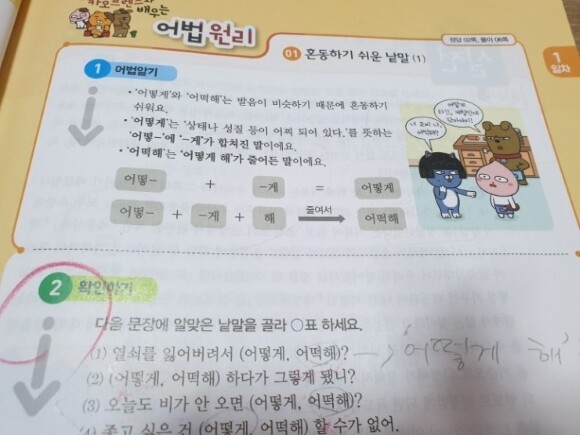 카카오프렌즈와
배우는
어법 원리
정답 02쪽, 풀이 06쪽
01 혼동하기 쉬운 낱말 (1)
1
일차
1 어법알기
• '어떻게'와 '어떡해'는 발음이 비슷하기 때문에 혼동하기
쉬워요.
• '어떻게'는 '상태나 성질 등이 어찌 되어 있다.'를 뜻하는
'어떻–'에 '–게'가 합쳐진 말이에요.
• '어떡해'는 '어떻게 해'가 줄어든 말이에요.
어떻– + –게 = 어떻게
어떻– + –게 + 해 줄여서 어떡해
2 확인하기
다음 문장에 알맞은 낱말을 골라 ○표 하세요.
(1) 열쇠를 잃어버려서 (어떻게, 어떡해)? → '어떻게 해'
(2) (어떻게, 어떡해) 하다가 그렇게 됐니?
(3) 오늘도 비가 안 오면 (어떻게, 어떡해)?
(4) 좋고 싫은 건 (어떻게, 어떡해) 할 수가 없어.